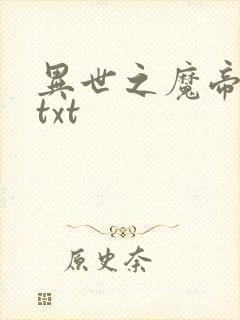 異世之魔帝
txt
原史奈